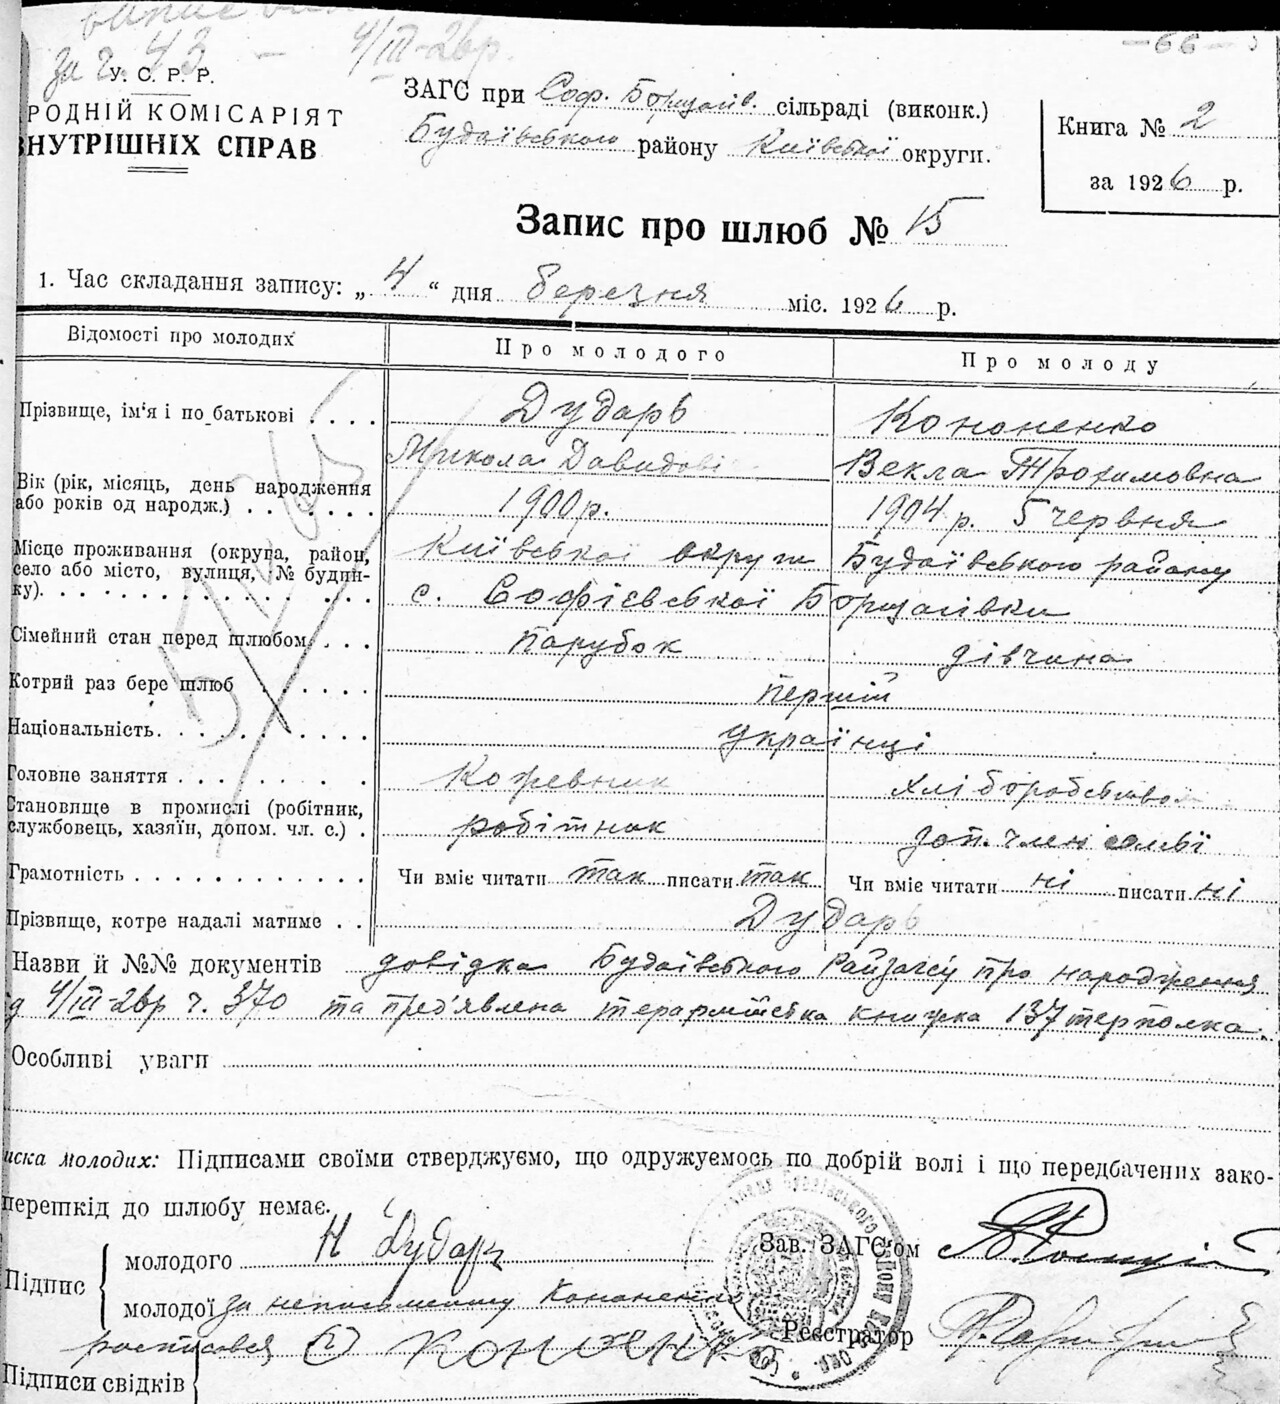 за ч. 43 – 4/III-26р.
– 66 –
У. С. Р. Р.
РОДНІЙ КОМІСАРІЯТ
ВНУТРІШНІХ СПРАВ
ЗАГС при Соф. Борщагів. сільраді (виконк.)
Будаївського району Київської округи.
Книга № 2
за 1926 р.
Запис про шлюб № 15
1. Час складання запису: „ 4 “ дня березня міс. 1926 р.
Відомості про молодих Про молодого Про молоду
Прізвище, ім'я і по батькові . . . . Дударь Кононенко
Микола Давидові Векла Трохимовна
Вік (рік, місяць, день народження
або років од народж.) . . . . . . . 1900 р. 1904 р. 5 червня
Місце проживання (округа, район, Київської округи Будаївського району
село або місто, вулиця, № будин-
ку). . . . . . . . . . . . . . . . с. Софієвської Борщагівки
Сімейний стан перед шлюбом. . . . парубок дівчина
Котрий раз бере шлюб . . . . . . перший
Національність. . . . . . . . . . українці
Головне заняття . . . . . . . . . Кожевник хліборобство
Становище в промислі (робітник,
службовець, хазяїн, допом. чл. с.) . робітник доп. член сімї
Грамотність . . . . . . . . . . . . Чи вміє читати так писати так Чи вміє читати ні писати ні
Прізвище, котре надалі матиме . . Дударь
Назви й №№ документів довідка Будаївського Райзагсу про народження
д 4/III-26р ч. 370 та пред'явлена терармійська книжка 137 терполка.
Особливі уваги
иска молодих: Підписами своїми стверджуємо, що одружуємось по добрій волі і що передбачених зако-
перешкід до шлюбу немає.
Підпис
молодого Н Дударь
молодої за неписьменну Кононенко
росписався Кононенко
Підписи свідків
Зав. ЗАГС'ом
Реєстратор